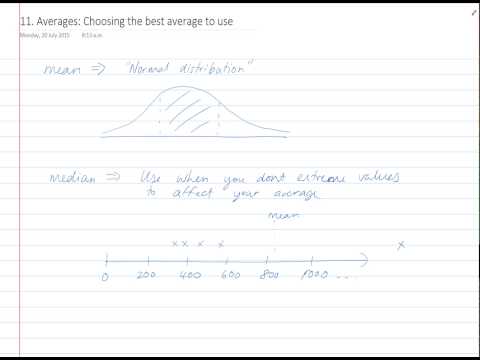 11. Averages: Choosing the best average to use
Monday, 20 July 2015 8:13 a.m.
mean ⇒ "Normal distribution"
median ⇒ Use when you dont extreme values
to affect your average
mean
x x x x x
0 200 400 600 800 1000 ....